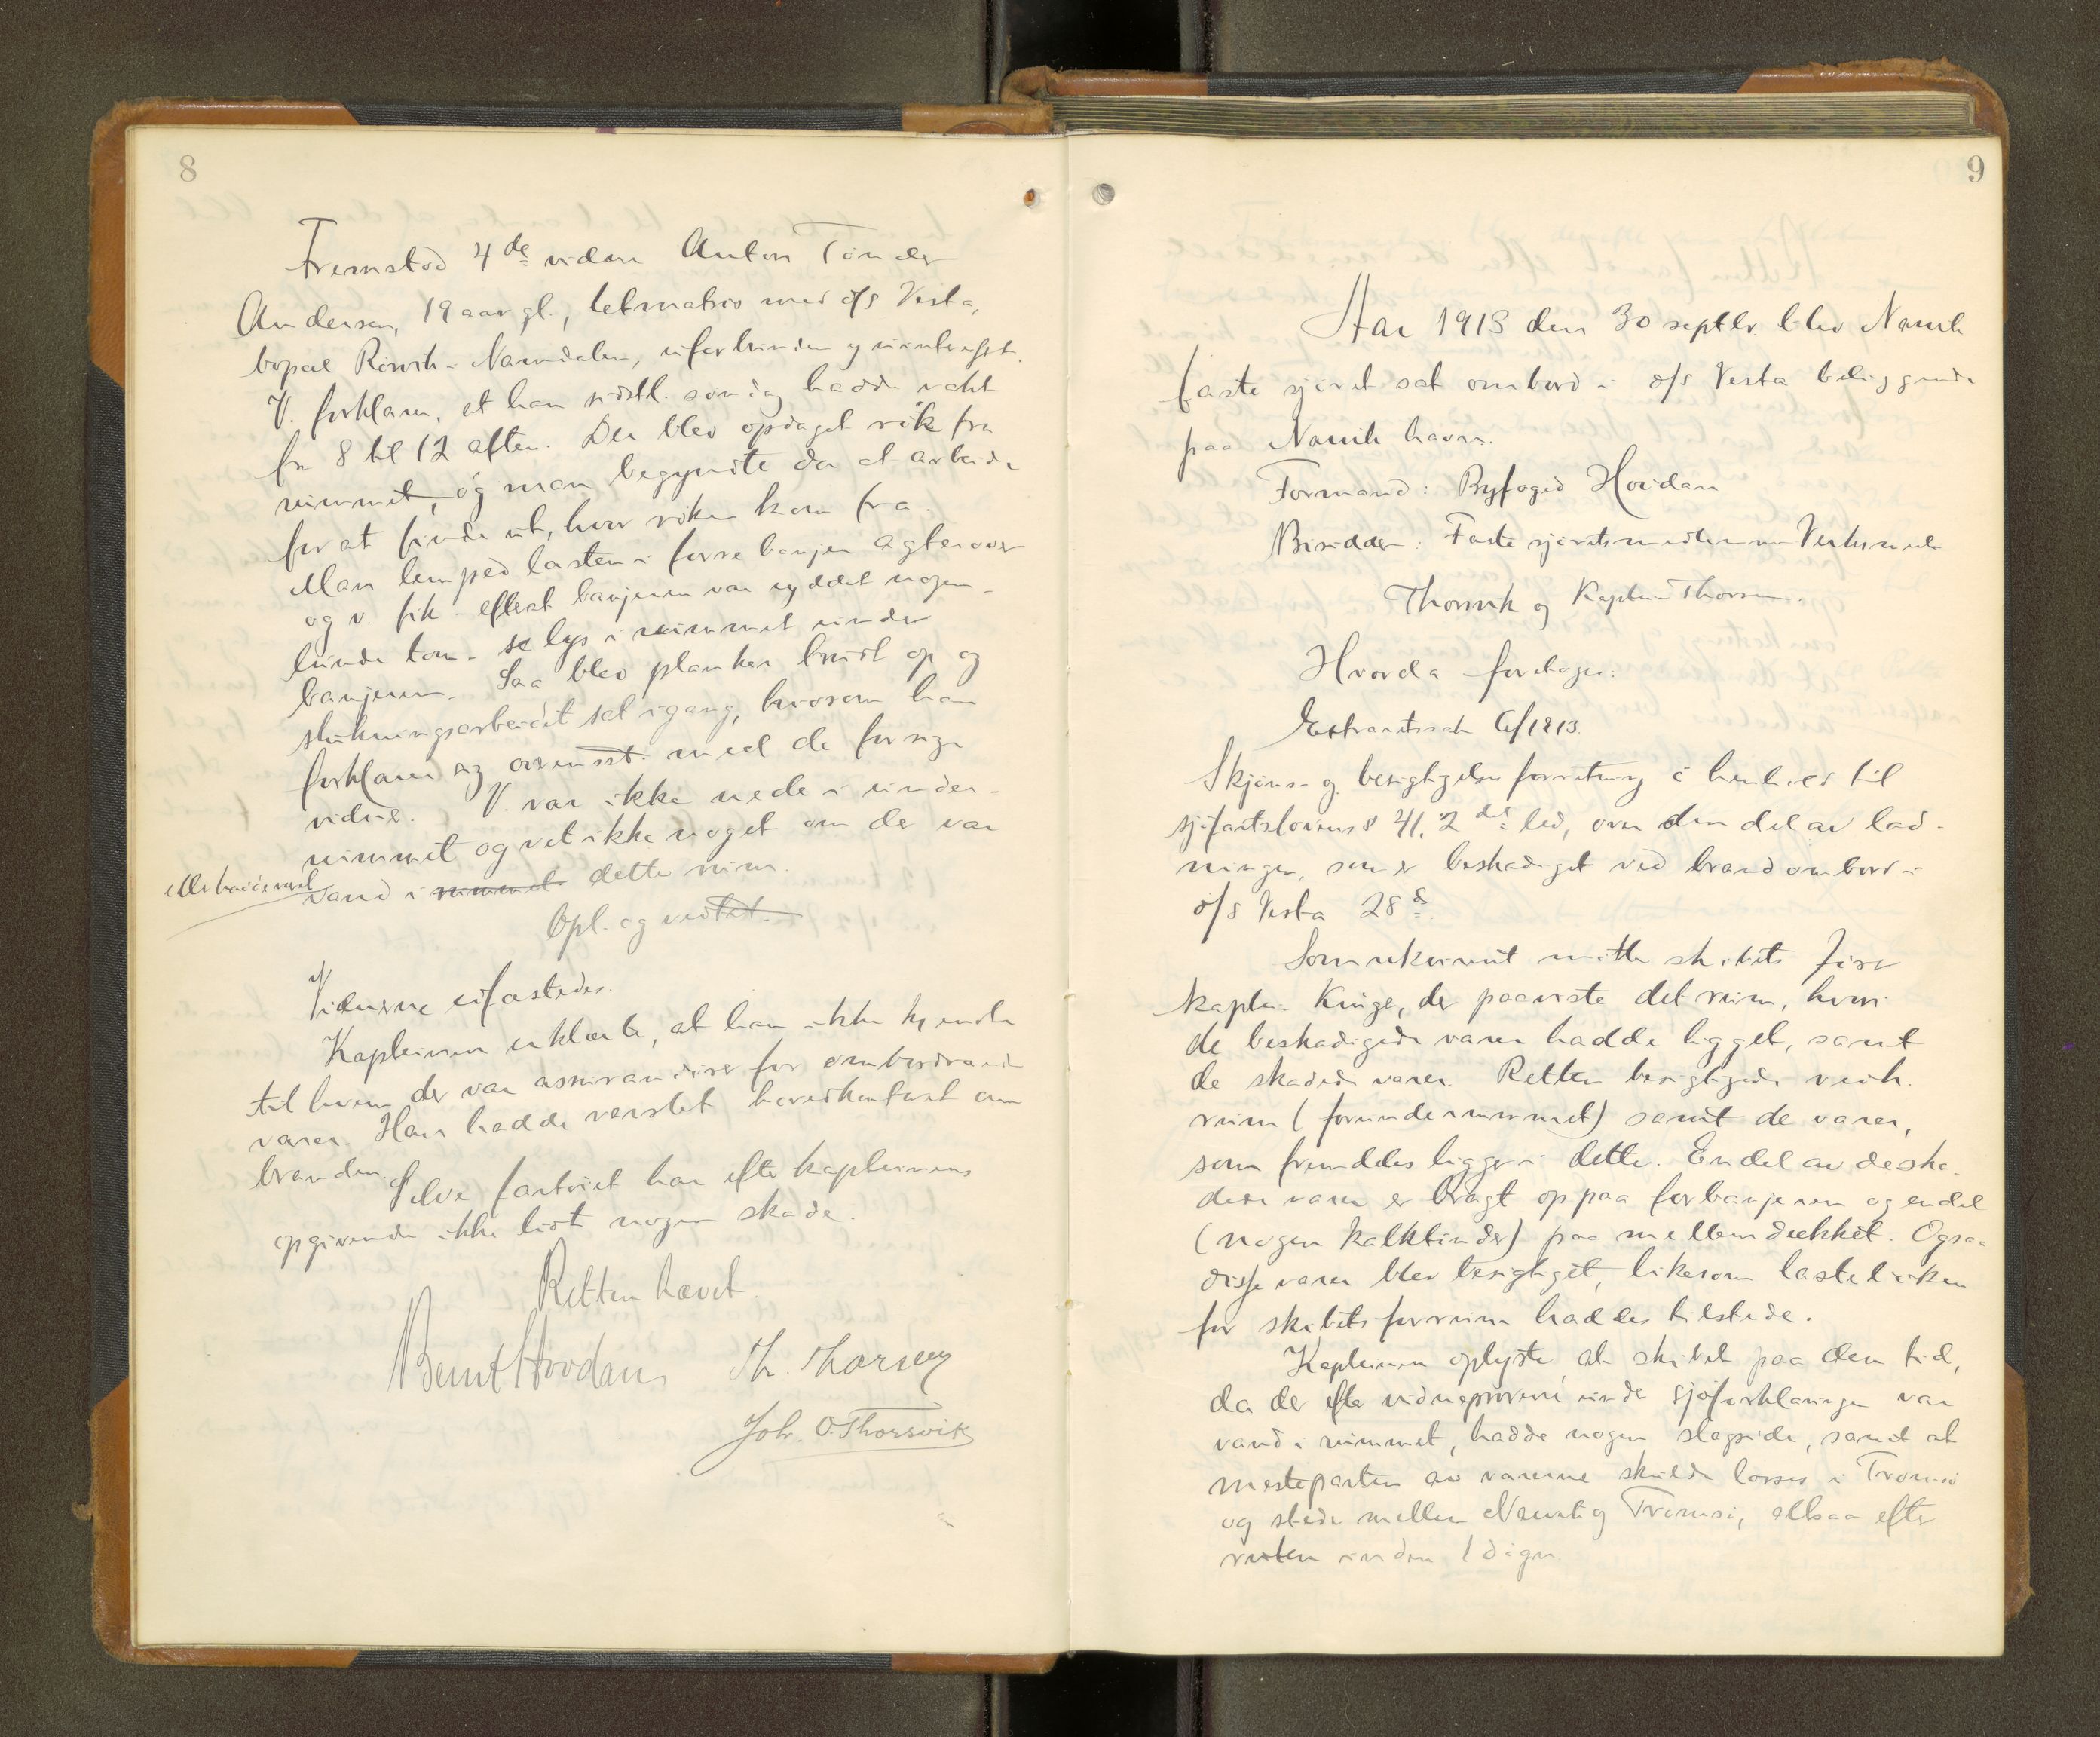 8
Fremstod 4de vidne Anton Tønder
Andersen, 19 aar gl., letmatros med d/s Vesta,
bopæl Rørvik - Namdalen, uforbunden og uinteresst.
V. forklarer, at han sidstl. søndag hadde vakt
fra 8 til 12 aften. Der blev opdaget røk fra
rummet, og man begyndte da at arbeide
for at finde ut, hvor røken kom fra.
Man lemped lasten i forre banjer agterover
og v. fik - efterat banjeren var ryddet nogen-
lunde tom - se lys i rummet under
banjeren. Saa blev planker brudt op og
slukningsarbeidet sat igang, hvorom han
forklarer sig overensst. med de forrige
vidner. V. var ikke nede i under-
rummet og vet ikke noget om der var
eller hadde været
vand i rummet dette rum.
Opl. og vedtat.
Vidnerne eifæstedes.
Kapteinen erklærte, at han ikke kjendte
til hvem der var assurandører for ombordværende
varer. Han hadde varslet hovedkontoret om
branden.
Selve fartøiet har efter kapteinens
opgivende ikke lidt nogen skade.
Retten hævet.
Bernt Hovdan Th. Thorsen
Joh. O. Thorsvik
9
Aar 1913 den 30 septbr. blev Narvik
faste sjøret sat ombord i d/s Vesta beliggende
paa Narvik havn.
Formand: Byfoged Hovdan
Bisiddere: Faste sjøretsmedlemmer Verksmester
Thorsvik og Kaptein Thorsen.
Hvorda foretoges:
Extraretssak 6/1913.
Skjøns- og besigtigelsesforretning i henhold til
sjøfartslovens § 41, 2det led, over den del av lad-
ningen, som er beskadiget ved brand ombord i
d/s Vesta 28 ds.
Som rekvirent møtte skibets fører
kaptein Kinge, der paaviste det rum, hvori
de beskadigede varer hadde ligget, samt
de skadede varer. Retten besigtigede vedk.
rum (forunderrummet) samt de varer,
som fremdeles ligger i dette. En del av de ska-
dede varer er bragt op paa forbanjeren og endel
(nogen kalktønder) paa mellemdækket. Ogsaa
disse varer blev besigtiget, likesom lasteluken
for skibets forrum haddes tilstede.
Kapteinen oplyste at skibet paa den tid,
da der efter vidneprovene under sjøforklaringen var
vand i rummet, hadde nogen slagside, samt at
mesteparten av varerne skulde losses i Tromsø
og steder mellem Narvik og Tromsø, altsaa efter
ruten inden 1 døgn.